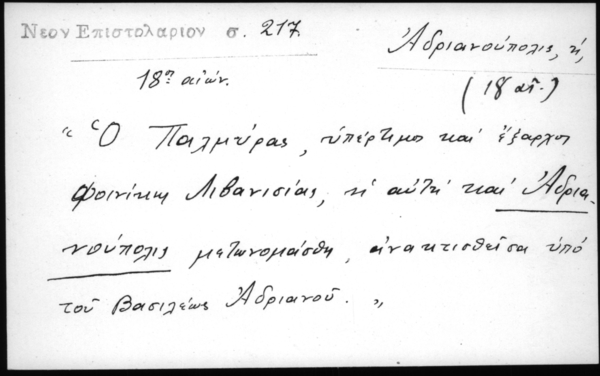 Νεον Επιστολαριον σ. 217
Ἀδριανούπολις, ἡ,
18ος αἰών.
(18 αἰ.)
"Ὁ Παλμύρας, ὑπέρτιμος καὶ ἔξαρχος
Φοινίκης Λιβανισίας, ἡ αὐτὴ καὶ Ἀδρια-
νούπολις μετωνομάσθη, ἀνακτισθεῖσα ὑπό
τοῦ Βασιλέως Ἀδριανοῦ."